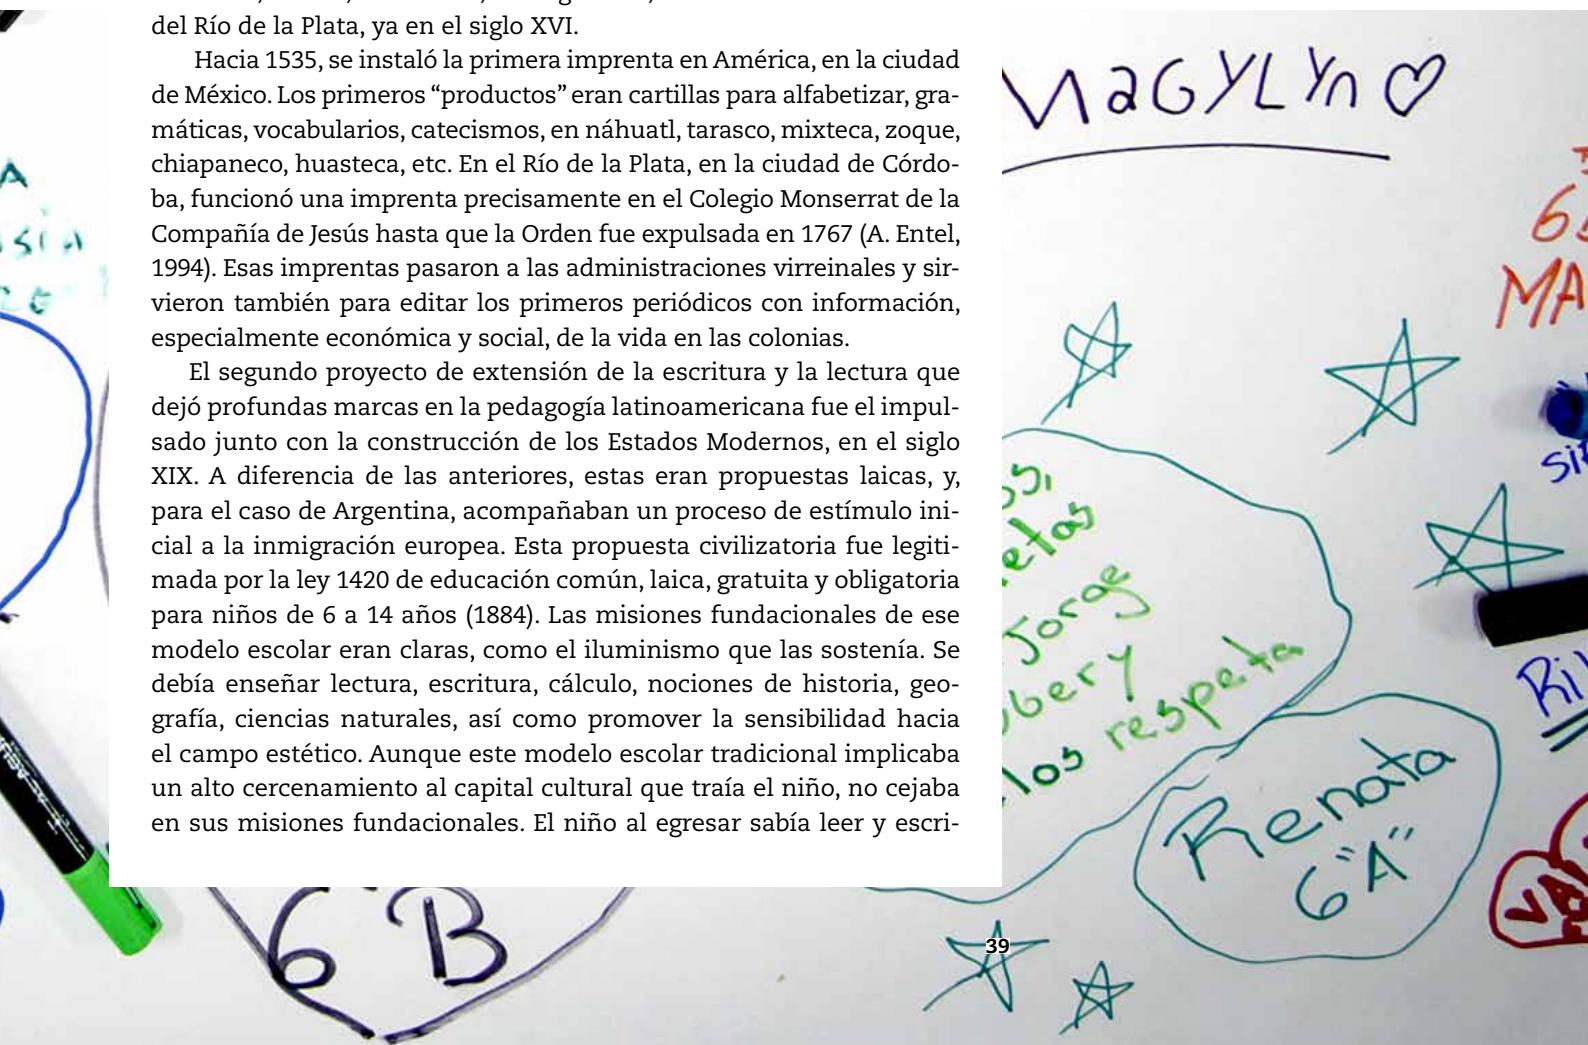 del Río de la Plata, ya en el siglo XVI.
Hacia 1535, se instaló la primera imprenta en América, en la ciudad
de México. Los primeros “productos” eran cartillas para alfabetizar, gra-
máticas, vocabularios, catecismos, en náhuatl, tarasco, mixteca, zoque,
chiapaneco, huasteca, etc. En el Río de la Plata, en la ciudad de Córdo-
ba, funcionó una imprenta precisamente en el Colegio Monserrat de la
Compañía de Jesús hasta que la Orden fue expulsada en 1767 (A. Entel,
1994). Esas imprentas pasaron a las administraciones virreinales y sir-
vieron también para editar los primeros periódicos con información,
especialmente económica y social, de la vida en las colonias.
El segundo proyecto de extensión de la escritura y la lectura que
dejó profundas marcas en la pedagogía latinoamericana fue el impul-
sado junto con la construcción de los Estados Modernos, en el siglo
XIX. A diferencia de las anteriores, estas eran propuestas laicas, y,
para el caso de Argentina, acompañaban un proceso de estímulo ini-
cial a la inmigración europea. Esta propuesta civilizatoria fue legiti-
mada por la ley 1420 de educación común, laica, gratuita y obligatoria
para niños de 6 a 14 años (1884). Las misiones fundacionales de ese
modelo escolar eran claras, como el iluminismo que las sostenía. Se
debía enseñar lectura, escritura, cálculo, nociones de historia, geo-
grafía, ciencias naturales, así como promover la sensibilidad hacia
el campo estético. Aunque este modelo escolar tradicional implicaba
un alto cercenamiento al capital cultural que traía el niño, no cejaba
en sus misiones fundacionales. El niño al egresar sabía leer y escri-
MaGYLYn
Jorge
los respeta
Renata
6 "A"
6 B
39